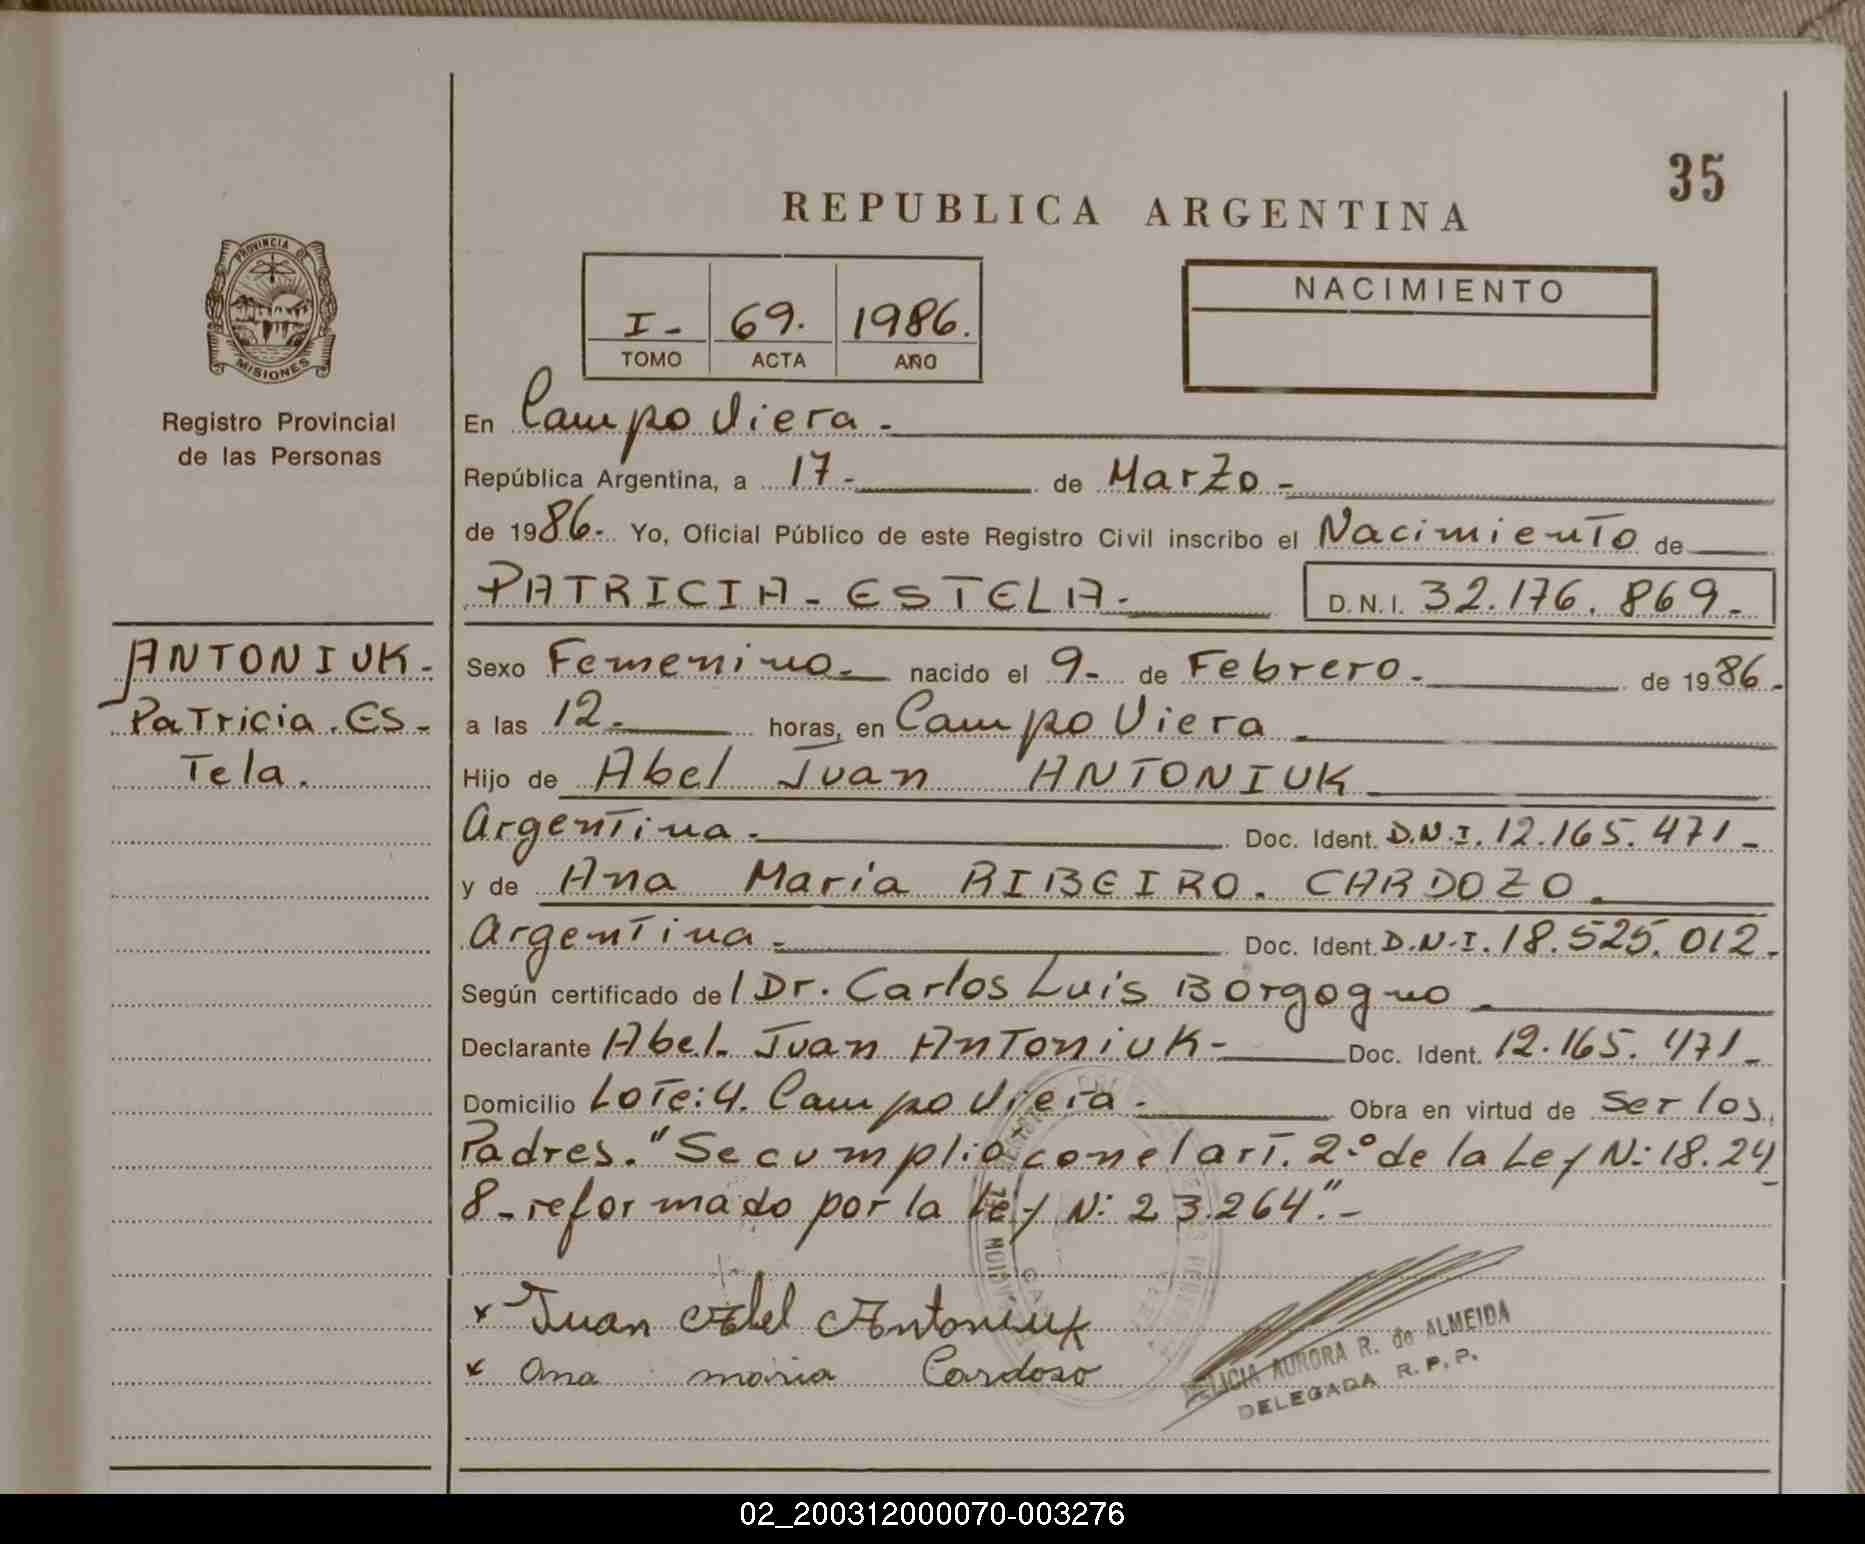 35
REPUBLICA ARGENTINA
PROVINCIA DE
MISIONES
Registro Provincial
de las Personas
I- 69. 1986.
TOMO ACTA AÑO
NACIMIENTO
En Campo Viera.-
República Argentina, a 17- de Marzo-
de 1986- Yo, Oficial Público de este Registro Civil inscribo el Nacimiento de
PATRICIA-ESTELA- D.N.I. 32.176.869-
ANTONIUK-
Patricia.Es-
Tela.
Sexo Femenino- nacido el 9- de Febrero- de 1986-
a las 12- horas, en Campo Viera
Hijo de Abel Juan ANTONIUK
Argentina- Doc. Ident. D.N.I. 12.165.471-
y de Ana Maria RIBEIRO. CARDOZO
Argentina- Doc. Ident. D.N.I. 18.525.012.
Según certificado del Dr. Carlos Luis Borgogno
Declarante Abel Juan Antoniuk- Doc. Ident. 12.165.471-
Domicilio Lote:4. Campo Viera- Obra en virtud de ser los
Padres. "Se cumplio con el art. 2.º de la Ley N: 18.24
8-reformado por la Ley N: 23.264".-
x Juan Abel Antoniuk
x Ana maria Cardoso
FELICIA AURORA R. de ALMEIDA
DELEGADA R.P.P.
02_200312000070-003276